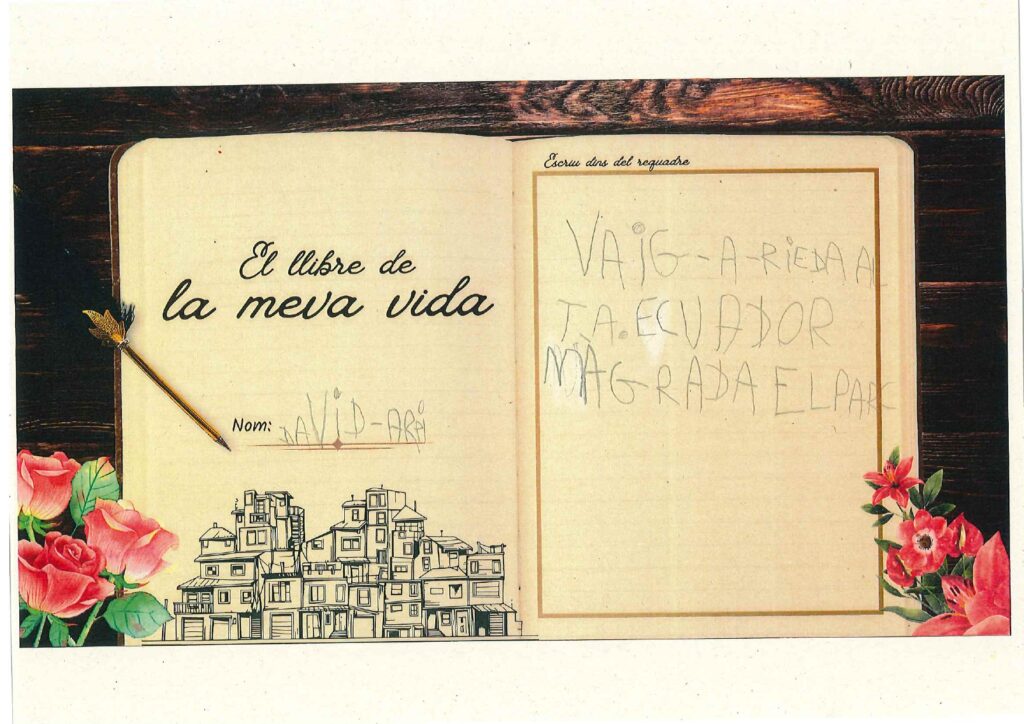 El llibre de
la meva vida
Nom: DAViD-ARPi
Escriu dins del requadre
VAiG-A-RiEDA AL
T.A. ECUADOR
M'AGRADA EL PARC